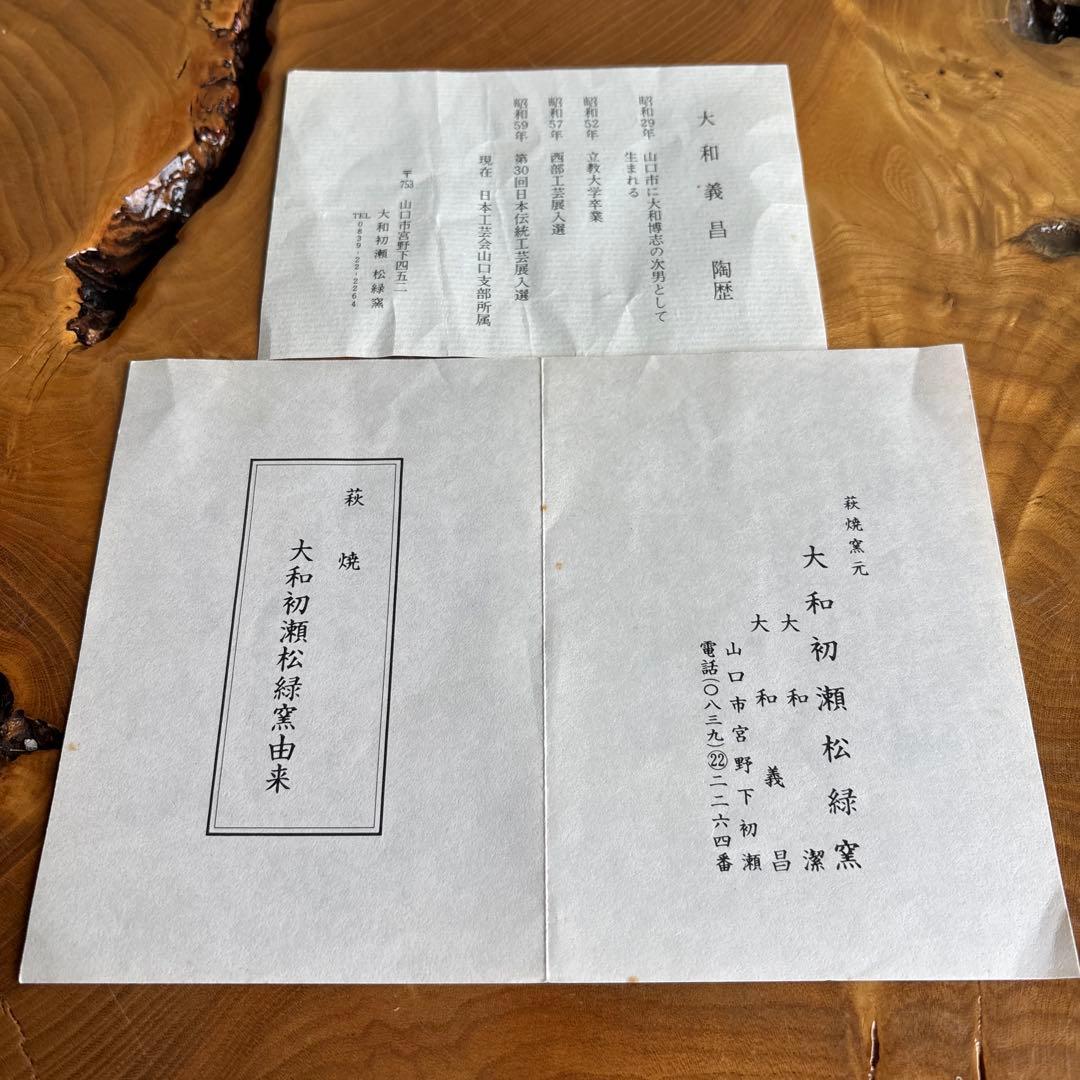 大和義昌陶歴
昭和29年 山口市に大和博志の次男として
生まれる
昭和52年 立教大学卒業
昭和57年 西部工芸展入選
昭和59年 第30回日本伝統工芸展入選
現在 日本工芸会山口支部所属
〒753 山口市宮野下四五二
大和初瀬 松緑窯
TEL 0839-22-2264
萩焼窯元
大和初瀬松緑窯
大和潔
大和義昌
山口市宮野下初瀬
電話(〇八三九)㉒二二六四番
萩焼
大和初瀬松緑窯由来